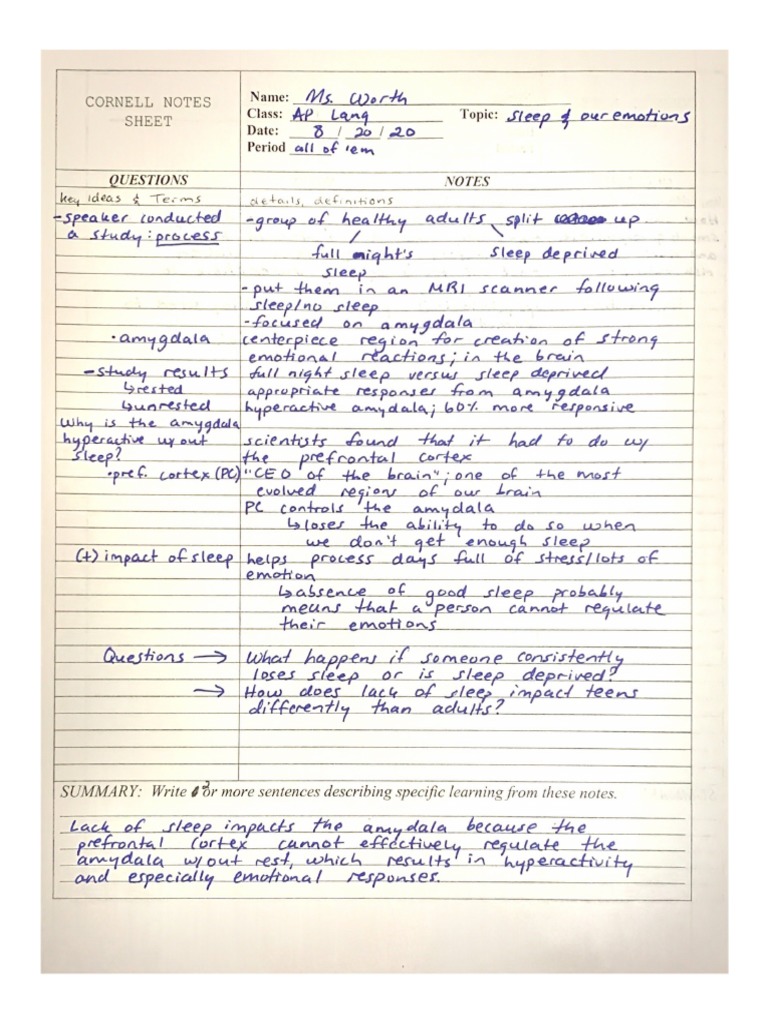 CORNELL NOTES
SHEET
Name: Ms. Worth
Class: AP Lang
Topic: Sleep & our emotions
Date: 8 / 20 / 20
Period all of 'em
QUESTIONS
NOTES
key ideas & Terms
details, definitions
- speaker conducted
a study: process
- group of healthy adults split up
full night's
sleep
sleep deprived
- put them in an MRI scanner following
sleep/no sleep
- focused on amygdala
• amygdala
centerpiece region for creation of strong
emotional reactions; in the brain
- study results
full night sleep versus sleep deprived
↳ rested
appropriate responses from amygdala
↳ unrested
hyperactive amydala; 60% more responsive
Why is the amygdala
hyperactive w/out
sleep?
scientists found that it had to do w/
the prefrontal cortex
• pref. cortex (PC)
"CEO of the brain"; one of the most
evolved regions of our brain
PC controls the amydala
↳ loses the ability to do so when
we don't get enough sleep
(+) impact of sleep
helps process days full of stress/lots of
emotion
↳ absence of good sleep probably
means that a person cannot regulate
their emotions
Questions →
What happens if someone consistently
loses sleep or is sleep deprived?
→ How does lack of sleep impact teens
differently than adults?
SUMMARY: Write or more sentences describing specific learning from these notes.
Lack of sleep impacts the amydala because the
prefrontal cortex cannot effectively regulate the
amydala w/out rest, which results in hyperactivity
and especially emotional responses.